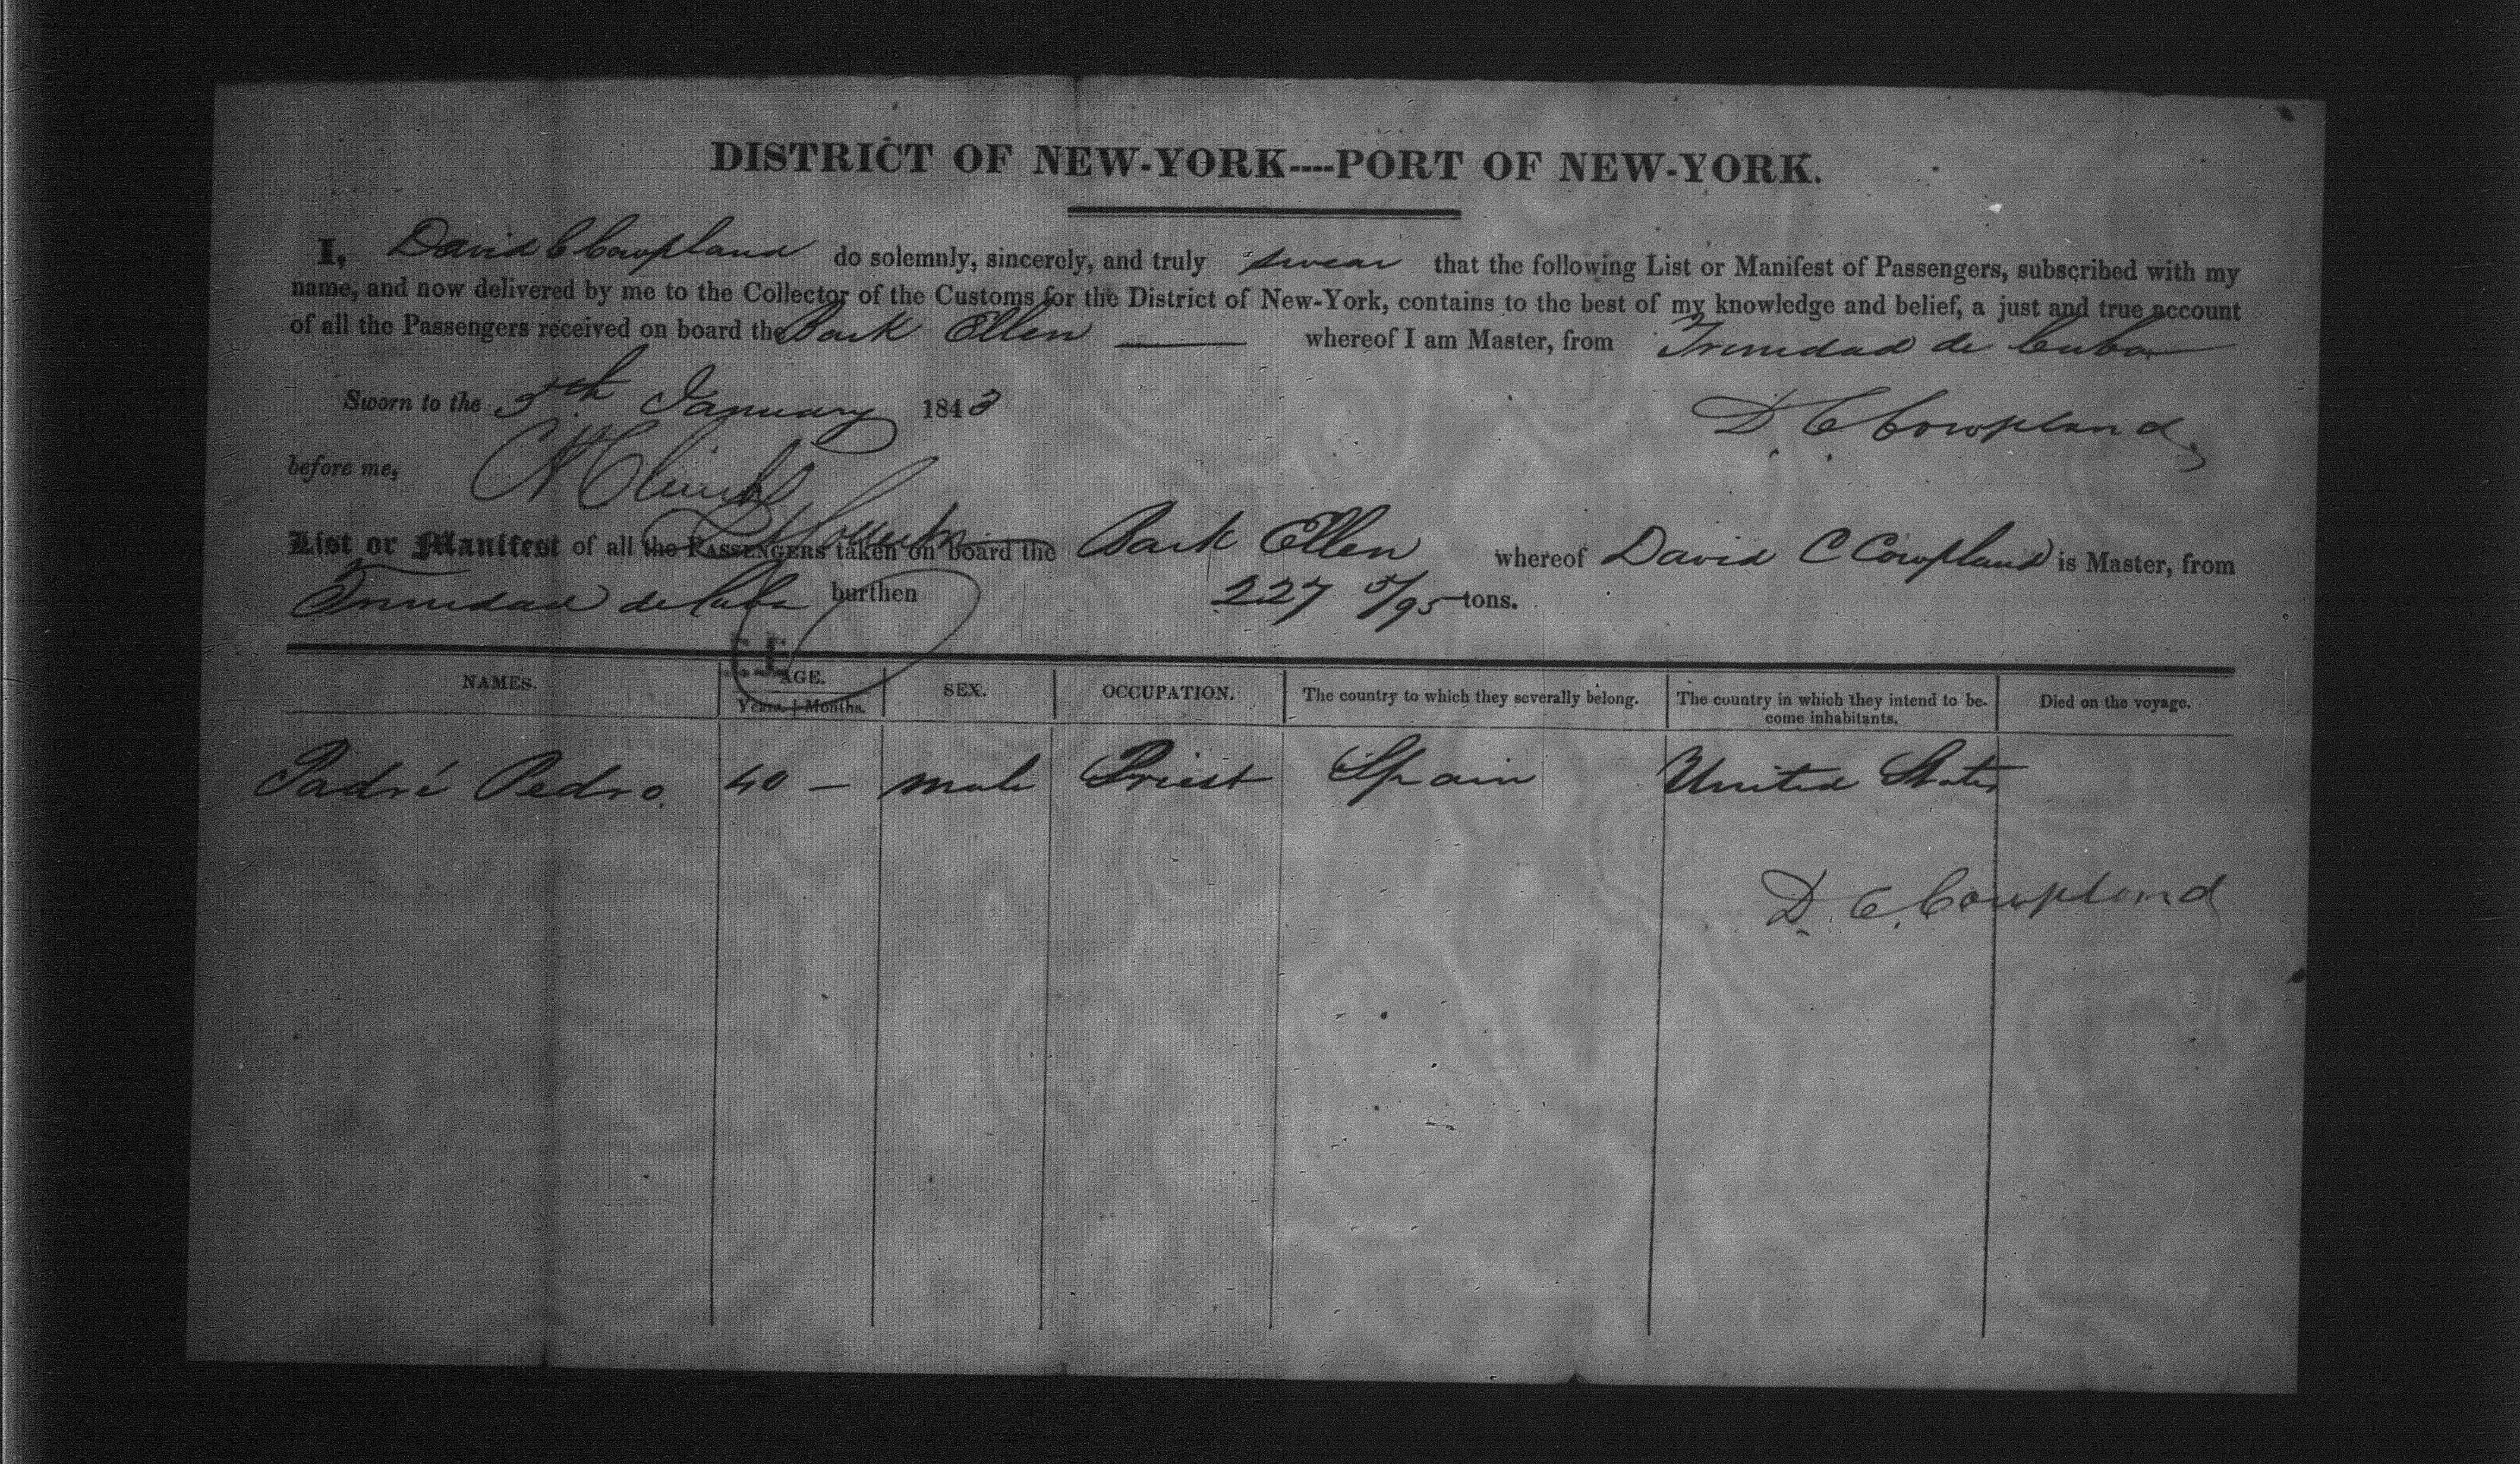 DISTRICT OF NEW-YORK----PORT OF NEW-YORK.
I, David C Cowpland do solemnly, sincerely, and truly swear that the following List or Manifest of Passengers, subscribed with my
name, and now delivered by me to the Collector of the Customs for the District of New-York, contains to the best of my knowledge and belief, a just and true account
of all the Passengers received on board the Bark Ellen whereof I am Master, from Trinidad de Cuba
Sworn to the 5th January 1843
D. C Cowpland
before me,
List or Manifest of all the PASSENGERS taken on board the Bark Ellen whereof David C Cowpland is Master, from
Trinidad de Cuba burthen 227 5/95 tons.
NAMES. AGE. SEX. OCCUPATION. The country to which they severally belong. The country in which they intend to be- Died on the voyage.
Years. Months. come inhabitants.
Padré Pedro. 40 — male Priest Spain United States
D. C. Cowpland